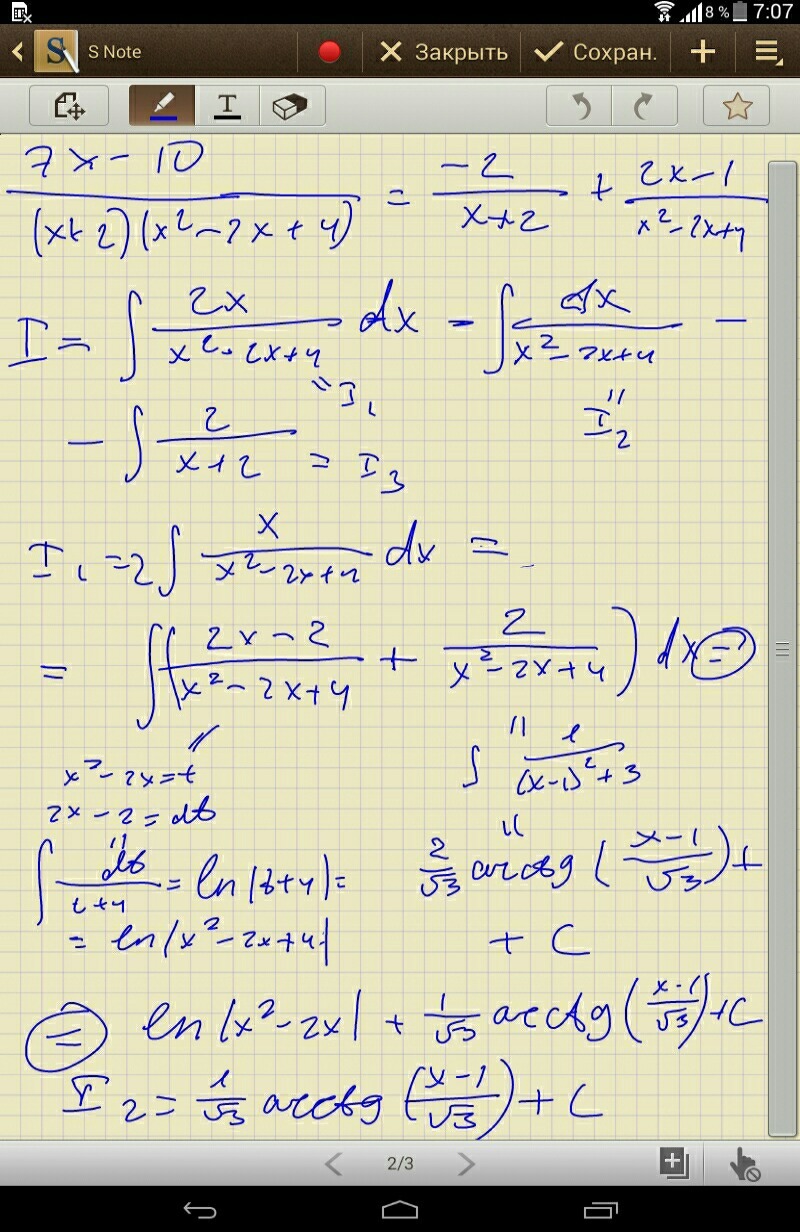 8 % 7:07
S Note Закрыть Сохран.
T
7x - 10 / (x+2)(x² - 2x + 4) = -2 / x+2 + 2x-1 / x²-2x+4
I = ∫ 2x / x²-2x+4 dx - ∫ dx / x²-2x+4 -
= I₁ " I₂
- ∫ 2 / x+2 = I₃
I₁ = 2 ∫ x / x²-2x+4 dx =
= ∫ ( 2x-2 / x²-2x+4 + 2 / x²-2x+4 ) dx =
x²-2x=t " ∫ 1 / (x-1)²+3
2x-2=dt
∫ dt / t+4 = ln|t+4| = " 2/√3 arctg ( x-1 / √3 ) +
= ln|x²-2x+4| + C
= ln|x²-2x| + 1/√3 arctg ( x-1 / √3 ) + C
I₂ = 1/√3 arctg ( x-1 / √3 ) + C
2/3